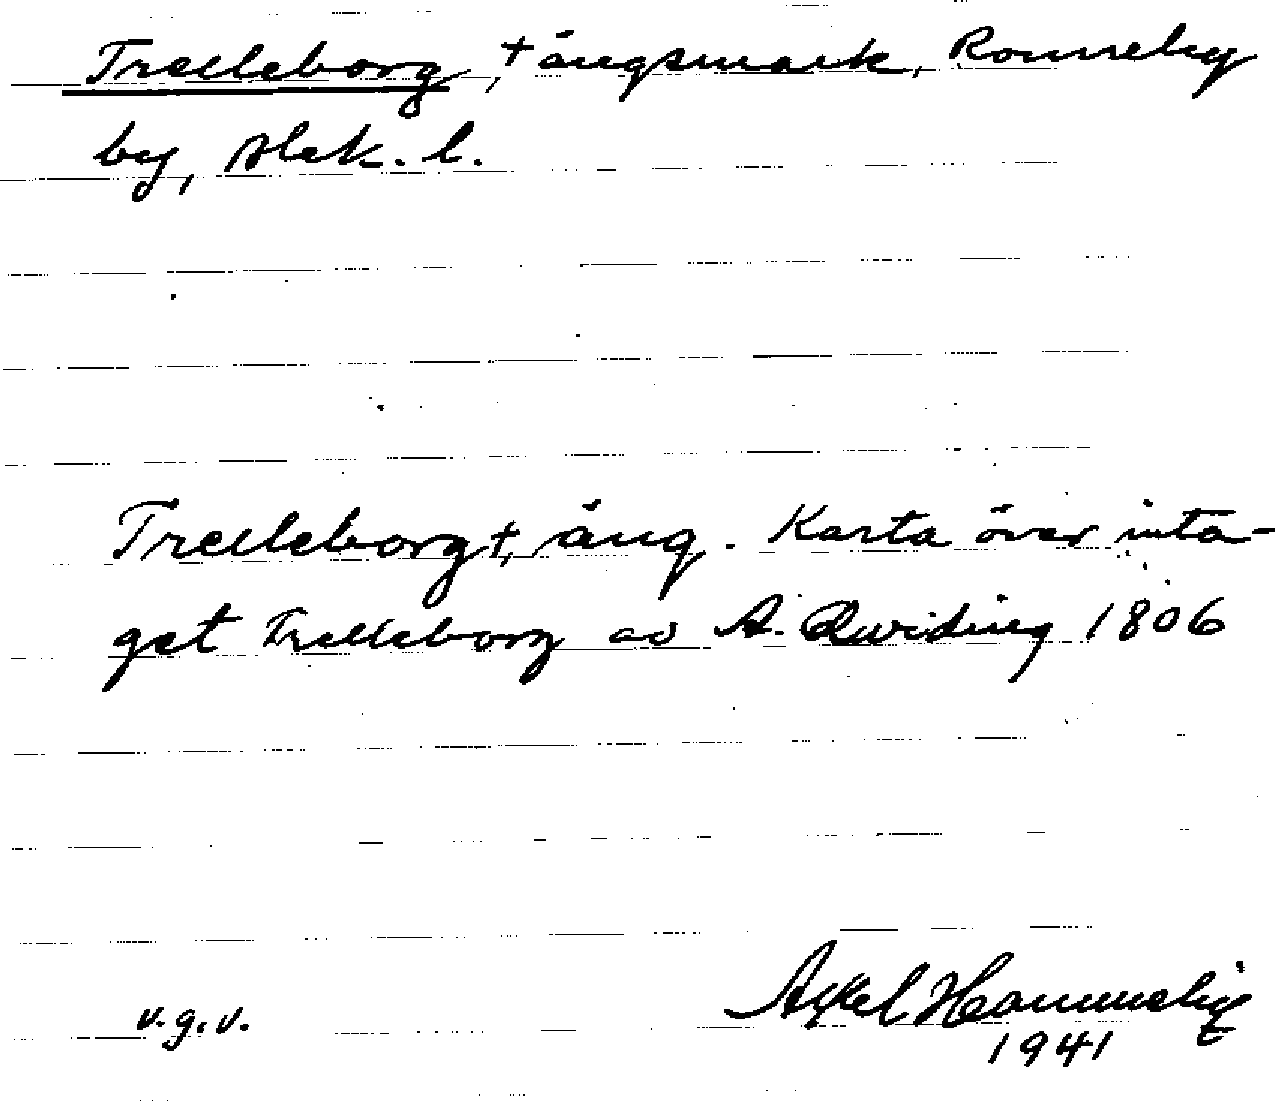 Trelleborg, † ängsmark, Ronneby
by, Hek. l.
Trelleborg †, äng. Karta över inta-
get Trelleborg av A. Qwiding 1806
v.g.v.
Axel
1941